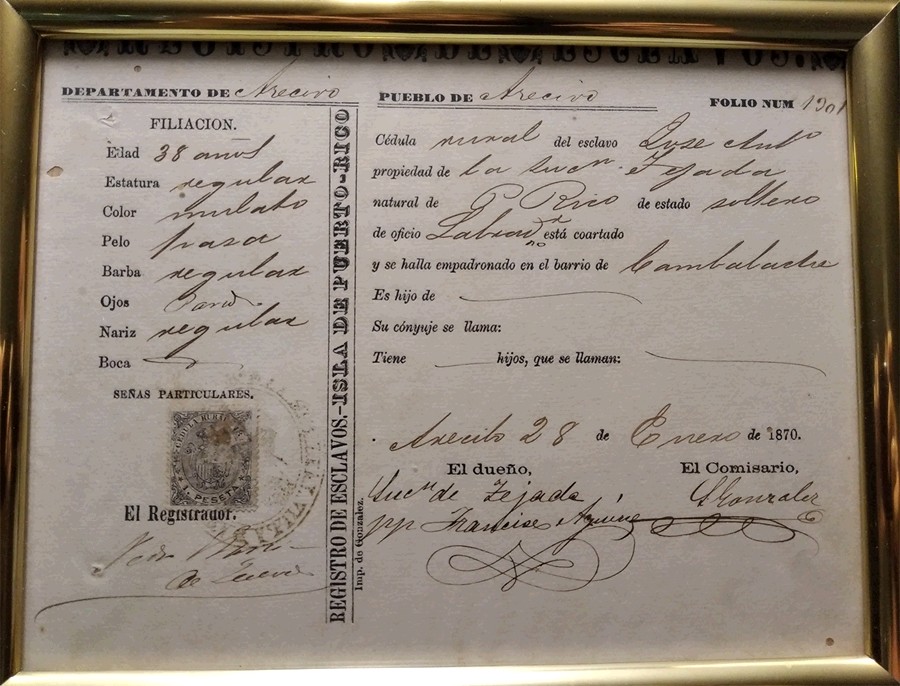 REGISTRO DE ESCLAVOS.
DEPARTAMENTO DE Arecivo
PUEBLO DE Arecivo
FOLIO NUM 1901
FILIACION.
Edad 38 años
Estatura regular
Color mulato
Pelo pasa
Barba regular
Ojos
Nariz regular
Boca
SEÑAS PARTICULARES.
1 PESETA
El Registrador.
REGISTRO DE ESCLAVOS.-ISLA DE PUERTO-RICO
Imp. de Gonzalez.
Cédula rural del esclavo Jose Antº
propiedad de la Sucn. Tejada
natural de P. Rico de estado soltero
de oficio Labrador no está coartado
y se halla empadronado en el barrio de Cambalache
Es hijo de
Su cónyuje se llama:
Tiene hijos, que se llaman:
Arecibo 28 de Enero de 1870.
El dueño,
El Comisario,
Sucn de Tejada
pp Francisco
Gonzalez